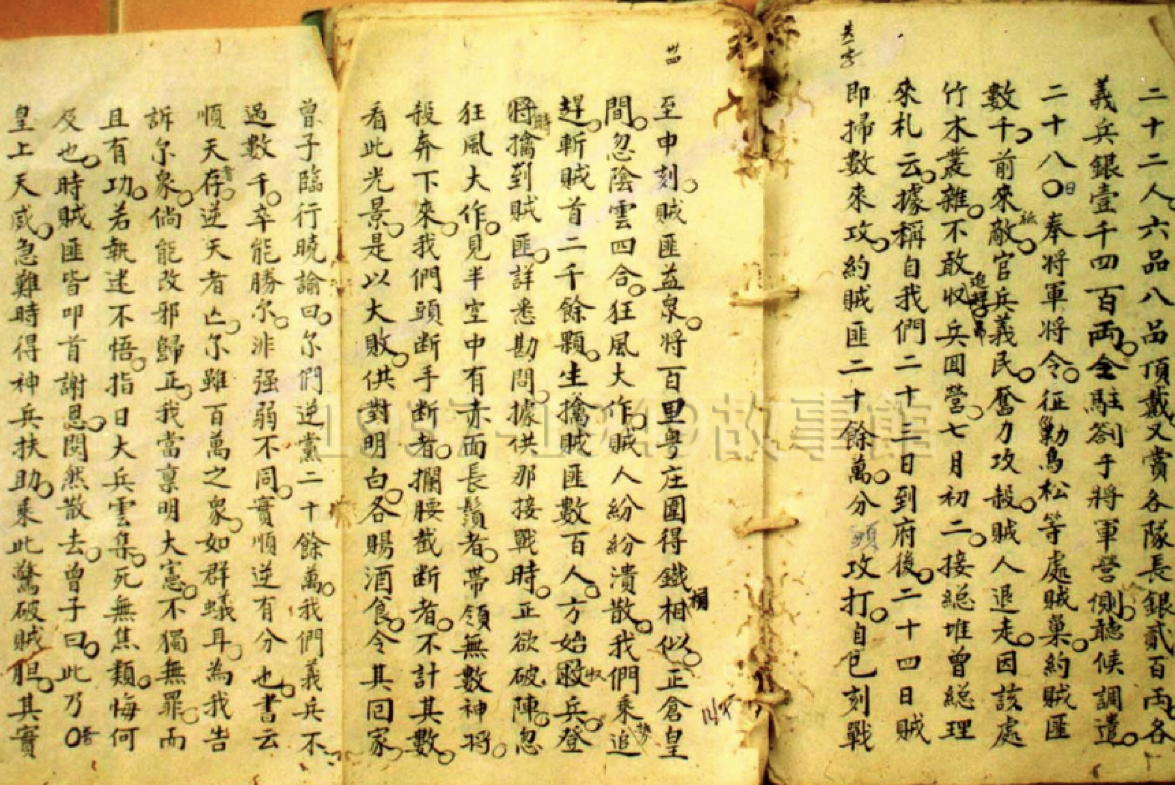 二十二人六品八品頂戴又賞各隊長銀貳百両各
義兵銀壹千四百両仝駐劄于將軍營側聽候調遣
二十八日奉將軍將令征勦鳥松等處賊巢約賊匪
數千前來敵官兵義民奮力攻殺賊人退走因該處
竹木叢雜不敢收兵囬營七月初二接總堆曾総理
來札云據稱自我們二十三日到府後二十四日賊
即掃數來攻約賊匪二十餘萬分頭攻打自巳刻戰
卌四
至申刻賊匪益泉將百里粤庄圍得鐵桶相似正倉皇
間忽陰雲四合狂風大作賊人紛紛潰散我們乘勢追
趕斬賊首二千餘顆生擒賊匪數百人方始收兵登
時將擒到賊匪詳悉勘問據供那接戰時正欲破陣忽
狂風大作見半空中有赤面長鬚者帶領無數神將
殺奔下來我們頭斷手斷者攔腰截断者不計其數
看此光景是以大敗供對明白各賜酒食令其囘家
曾子臨行曉諭曰尔們逆黨二十餘萬我們義兵不
過數千卒能勝尔非强弱不同實順逆有分也書云
順天者存逆天者亾尔雖百萬之衆如群蟻耳為我告
訴尔衆倘能改邪歸正我當禀明大憲不獨無罪而
且有功若執迷不悟指日大兵雲集死無焦類悔何
及也時賊匪皆叩首謝恩閧然散去曾子曰此乃吾
皇上天威急難時得神兵扶助乘此驚破賊胆其實
1937-1949故事館